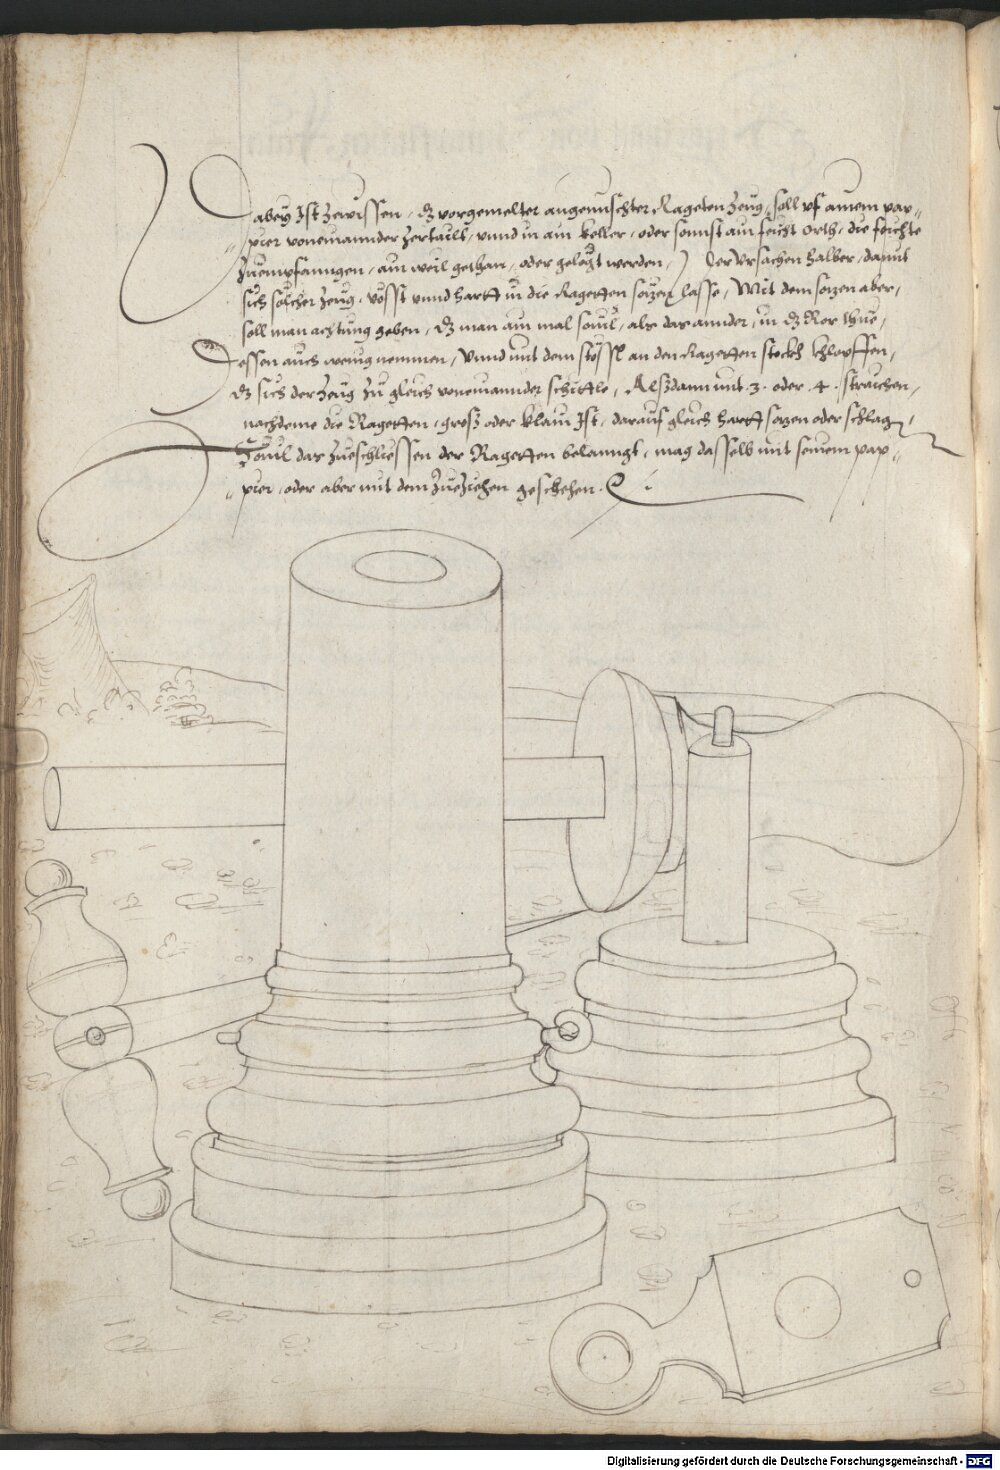 Dabeӱ Ist Zewissen, dz vorgemelter angemischter Rageten Zeüg, soll vf ainem pap=
=pier voneinannder Zertailt, vnnd in ain keller, oder sonnst ain feücht orth, die feüchte
Zuempfanngen, ain weil gethan, oder gelegt werden, Der Vrsachen halber, damit
sich solcher Zeüg, vösst vnnd hartt in die Ragetten sözen lasse, Mit dem sözen aber,
soll man achtung geben, dz man ain mal souil, als das annder, in dz Ror thüe,
Dessen auch wenig nemmen, Vnnd mit dem stössl an den Ragetten stockh khlopffen,
dz sich der Zeüg Zu gleich voneinannder schüttle, Alßdann mit .3. oder .4. straichen,
nachdeme die Ragetten, groß oder klain Ist, darauf gleich hartt sözen oder schlagen,
Souil das Zueschliessen der Ragetten belanngt, mag dasselb mit seinem pap=
=pier, oder aber mit dem Zueziehen geschehen.
Digitalisierung gefördert durch die Deutsche Forschungsgemeinschaft - DFG